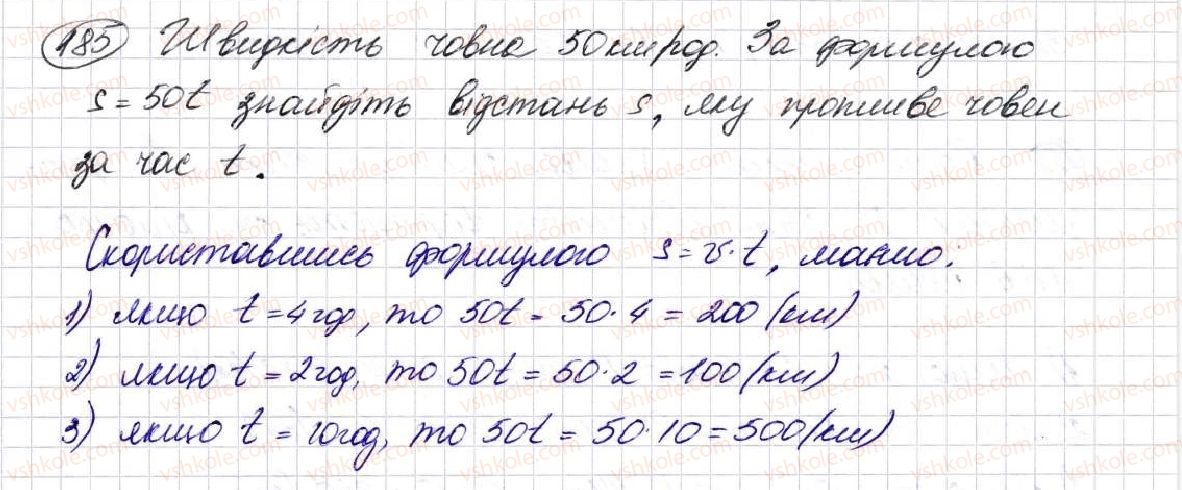 185 Швидкість човна 50 км/год. За формулою
s = 50t знайдіть відстань s, яку пропливе човен
за час t.
Скориставшись формулою s = v·t, маємо:
1) якщо t = 4 год, то 50t = 50·4 = 200 (км)
2) якщо t = 2 год, то 50t = 50·2 = 100 (км)
3) якщо t = 10 год, то 50t = 50·10 = 500 (км)
vshkole.com